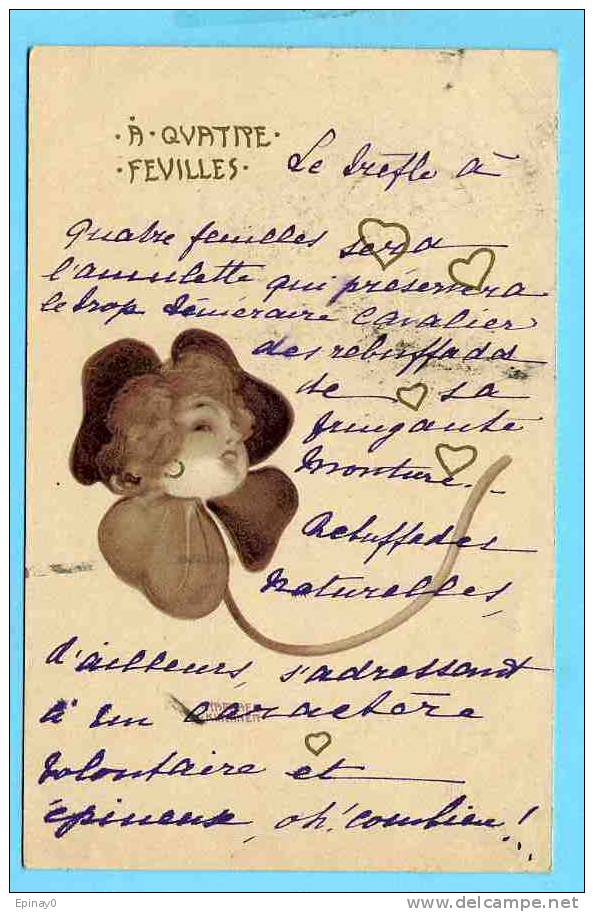 ·A·QVATRE·
·FEVILLES·
Le trèfle à
quatre feuilles sera
l'amulette qui préservera
le trop téméraire cavalier
des rebuffades
de sa
fringante
monture. -
Rebuffades
naturelles,
d'ailleurs, s'adressant
à un caractère
volontaire et
épineux, oh! combien!
KIRCHNER
Epinay0
www.delcampe.net